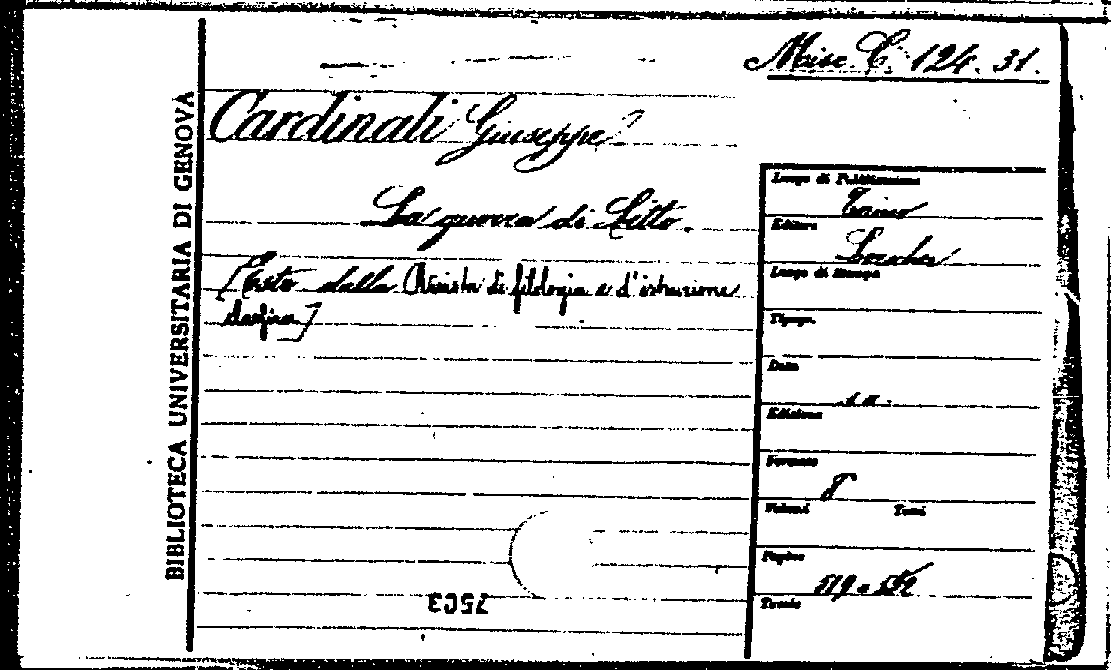 Misc. C. 124. 31.
BIBLIOTECA UNIVERSITARIA DI GENOVA
Cardinali Giuseppe
La guerra di Litto.
[Estr. dalla Rivista di filologia e d'istruzione
classica]
Luogo di Pubblicazione
Torino
Editore
Loescher
Luogo di Stampa
Tipogr.
Data
s. a.
Edizione
Formato
8°
Volumi Tomi
Pagine
519 a
Tavole
7503